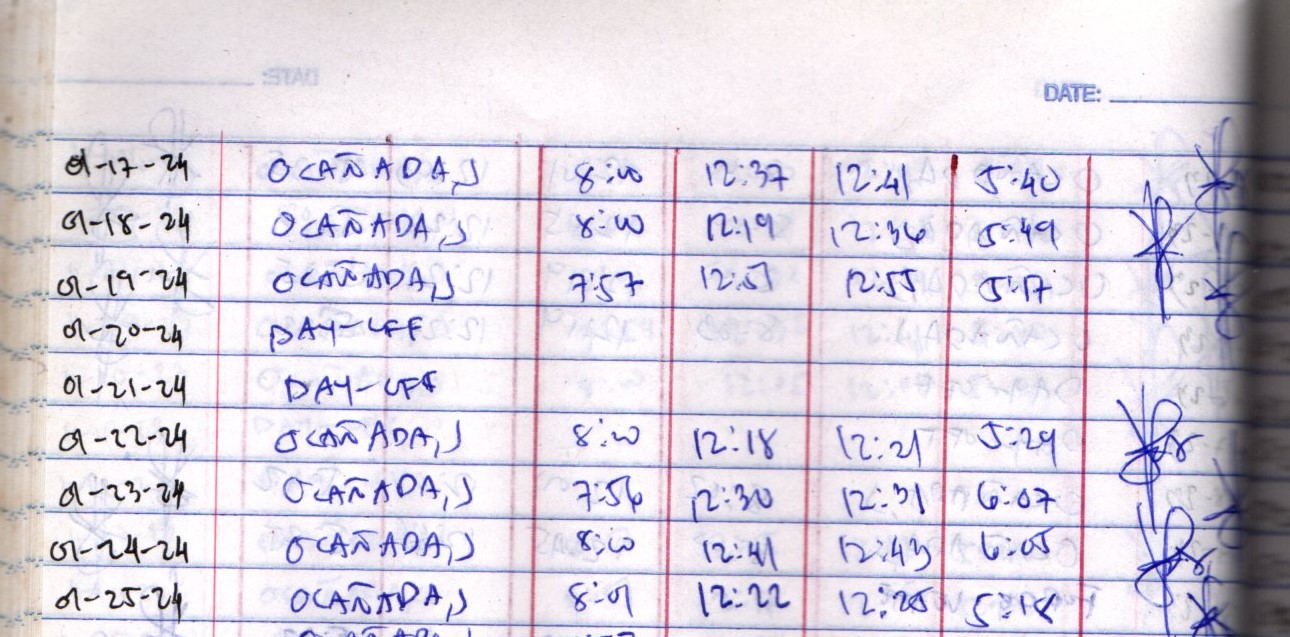 DATE:
01-17-24 OCAÑADA, J 8:00 12:37 12:41 5:40
01-18-24 OCAÑADA, J 8:00 12:19 12:36 5:49
01-19-24 OCAÑADA, J 7:57 12:51 12:55 5:17
01-20-24 DAY-OFF
01-21-24 DAY-OFF
01-22-24 OCAÑADA, J 8:00 12:18 12:21 5:29
01-23-24 OCAÑADA, J 7:56 12:30 12:31 6:07
01-24-24 OCAÑADA, J 8:00 12:41 12:43 6:05
01-25-24 OCAÑADA, J 8:01 12:22 12:25 5:18